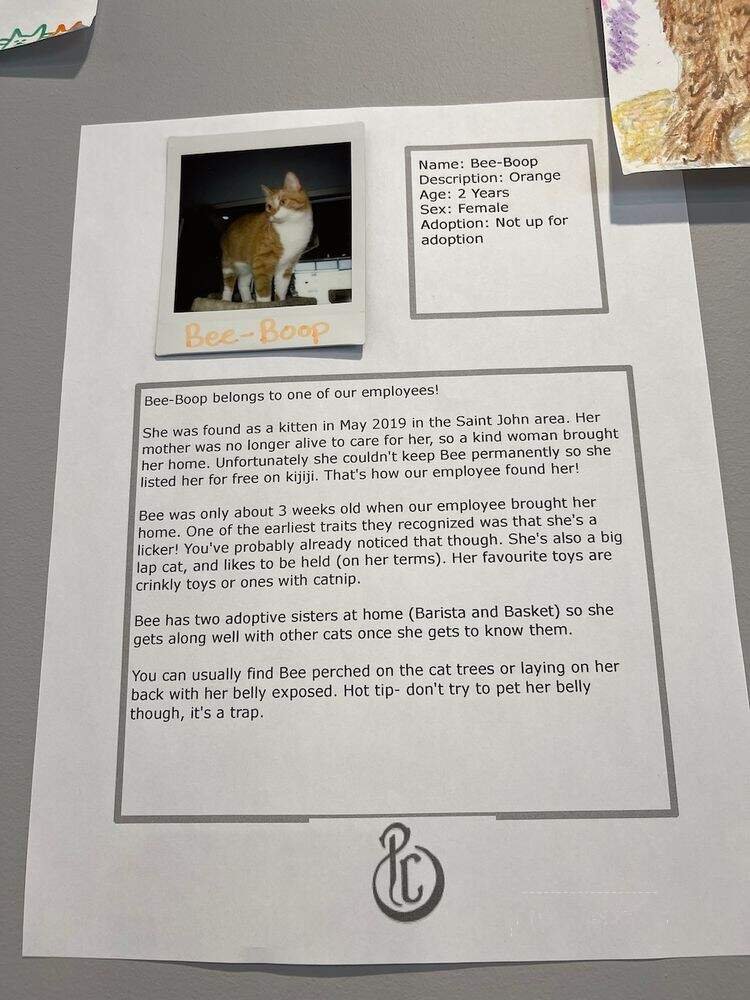 Bee-Boop
Name: Bee-Boop
Description: Orange
Age: 2 Years
Sex: Female
Adoption: Not up for
adoption
Bee-Boop belongs to one of our employees!
She was found as a kitten in May 2019 in the Saint John area. Her
mother was no longer alive to care for her, so a kind woman brought
her home. Unfortunately she couldn't keep Bee permanently so she
listed her for free on kijiji. That's how our employee found her!
Bee was only about 3 weeks old when our employee brought her
home. One of the earliest traits they recognized was that she's a
licker! You've probably already noticed that though. She's also a big
lap cat, and likes to be held (on her terms). Her favourite toys are
crinkly toys or ones with catnip.
Bee has two adoptive sisters at home (Barista and Basket) so she
gets along well with other cats once she gets to know them.
You can usually find Bee perched on the cat trees or laying on her
back with her belly exposed. Hot tip- don't try to pet her belly
though, it's a trap.
PC